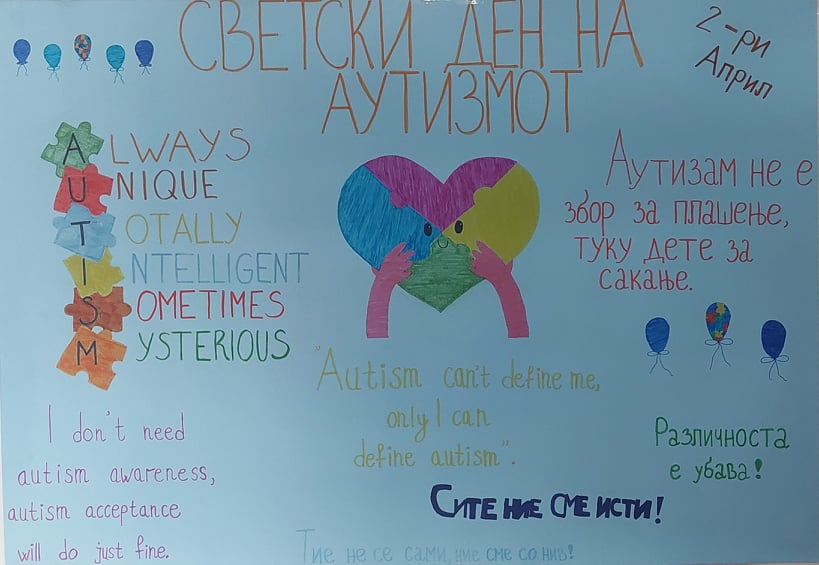 СВЕТСКИ ДЕН НА
АУТИЗМОТ
2-ри
Април
ALWAYS
UNIQUE
TOTALLY
INTELLIGENT
SOMETIMES
MYSTERIOUS
Аутизам не е
збор за плашење,
туку дете за
сакање.
"Autism can't define me,
only I can
define autism".
I don't need
autism awareness,
autism acceptance
will do just fine.
Различноста
е убава!
СИТЕ НИЕ СМЕ ИСТИ!
Тие не се сами, ние сме со нив!